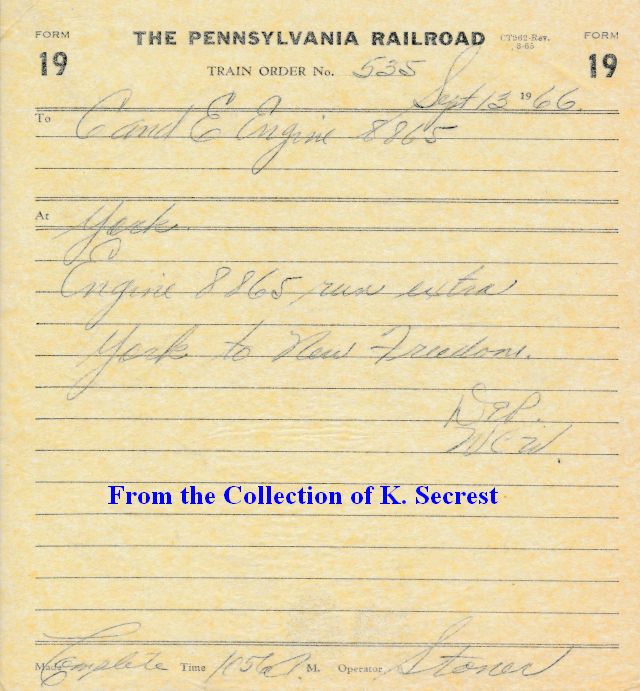 FORM THE PENNSYLVANIA RAILROAD CT262-Rev. FORM
19 TRAIN ORDER No. 535 3-65 19
Sept 13 1966
To C and E Engine 8865
At York.
Engine 8865 run extra
York to New Freedom.
WCW
From the Collection of K. Secrest
Made Complete Time M. Operator Stoner